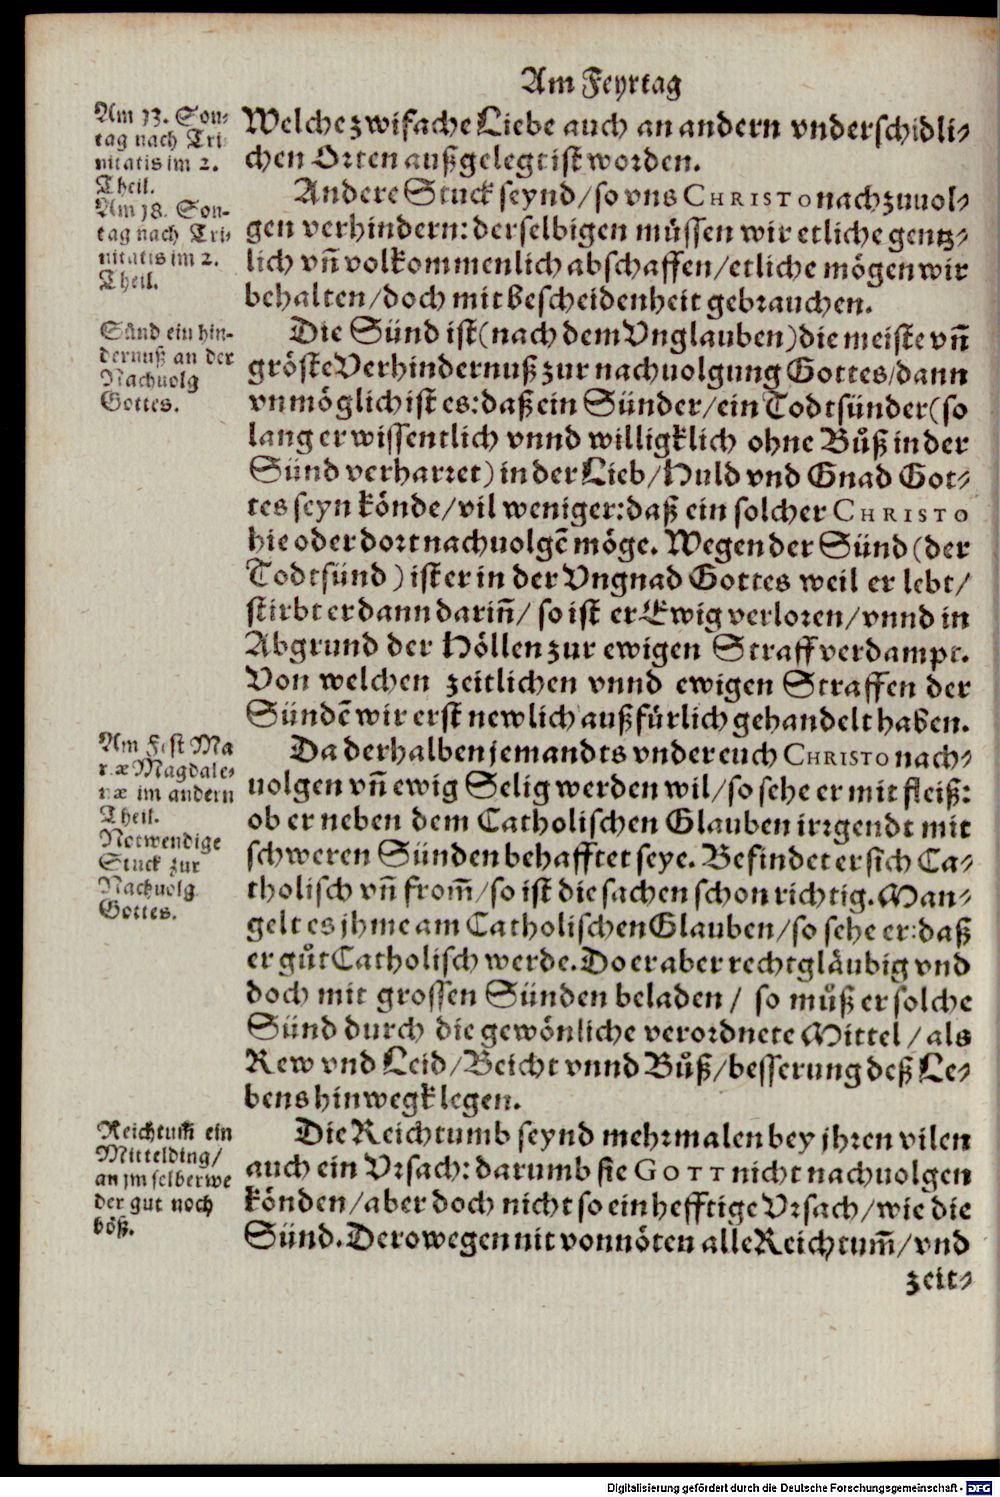 Am Feyrtag
Am 13. Son⸗
tag nach Tri
nitatis im 2.
Theil.
Am 18. Son-
tag nach Tri⸗
nitatis im 2.
Theil.
Welche zwifache Liebe auch an andern vnderschidli⸗
chen Orten außgelegt ist worden.
Andere Stuck seynd/so vns CHRISTO nachzuuol⸗
gen verhindern: derselbigen müssen wir etliche gentz⸗
lich vñ volkommenlich abschaffen/etliche mögen wir
behalten/doch mit bescheidenheit gebrauchen.
Sünd ein hin-
dernuß an der
Nachuolg
Gottes.
Die Sünd ist (nach dem Vnglauben) die meiste vñ
gröste Verhindernuß zur nachuolgung Gottes/dann
vnmöglich ist es: daß ein Sünder/ein Todtsünder (so
lang er wissentlich vnnd willigklich ohne Bůß in der
Sünd verharret) in der Lieb/Huld vnd Gnad Got⸗
tes seyn könde/vil weniger: daß ein solcher CHRISTO
hie oder dort nachuolgẽ möge. Wegen der Sünd (der
Todtsünd) ist er in der Vngnad Gottes weil er lebt/
stirbt er dann dariñ/ so ist er Ewig verloren/vnnd in
Abgrund der Höllen zur ewigen Straff verdampt.
Von welchen zeitlichen vnnd ewigen Straffen der
Sündẽ wir erst newlich außfürlich gehandelt haben.
Am Fest Ma
riæ Magdale⸗
næ im andern
Theil.
Notwendige
Stuck zur
Nachuolg
Gottes.
Da derhalben jemandts vnder euch CHRISTO nach⸗
uolgen vñ ewig Selig werden wil/so sehe er mit fleiß:
ob er neben dem Catholischen Glauben irrgendt mit
schweren Sünden behafftet seye. Befindet er sich Ca⸗
tholisch vñ from̃/so ist die sachen schon richtig. Man⸗
gelt es jhme am Catholischen Glauben/so sehe er: daß
er gůt Catholisch werde. Do er aber rechtgläubig vnd
doch mit grossen Sünden beladen/ so můß er solche
Sünd durch die gewönliche verordnete Mittel/als
Rew vnd Leid/Beicht vnnd Bůß/besserung deß Le⸗
bens hinwegk legen.
Reichtum̃ ein
Mittelding/
an jm selber we
der gut noch
böß.
Die Reichtumb seynd mehrmalen bey jhren vilen
auch ein Vrsach: darumb sie GOTT nicht nachuolgen
könden/aber doch nicht so ein hefftige Vrsach/wie die
Sünd. Derowegen nit vonnöten alle Reichtum̃/vnd
zeit⸗
Digitalisierung gefördert durch die Deutsche Forschungsgemeinschaft - DFG